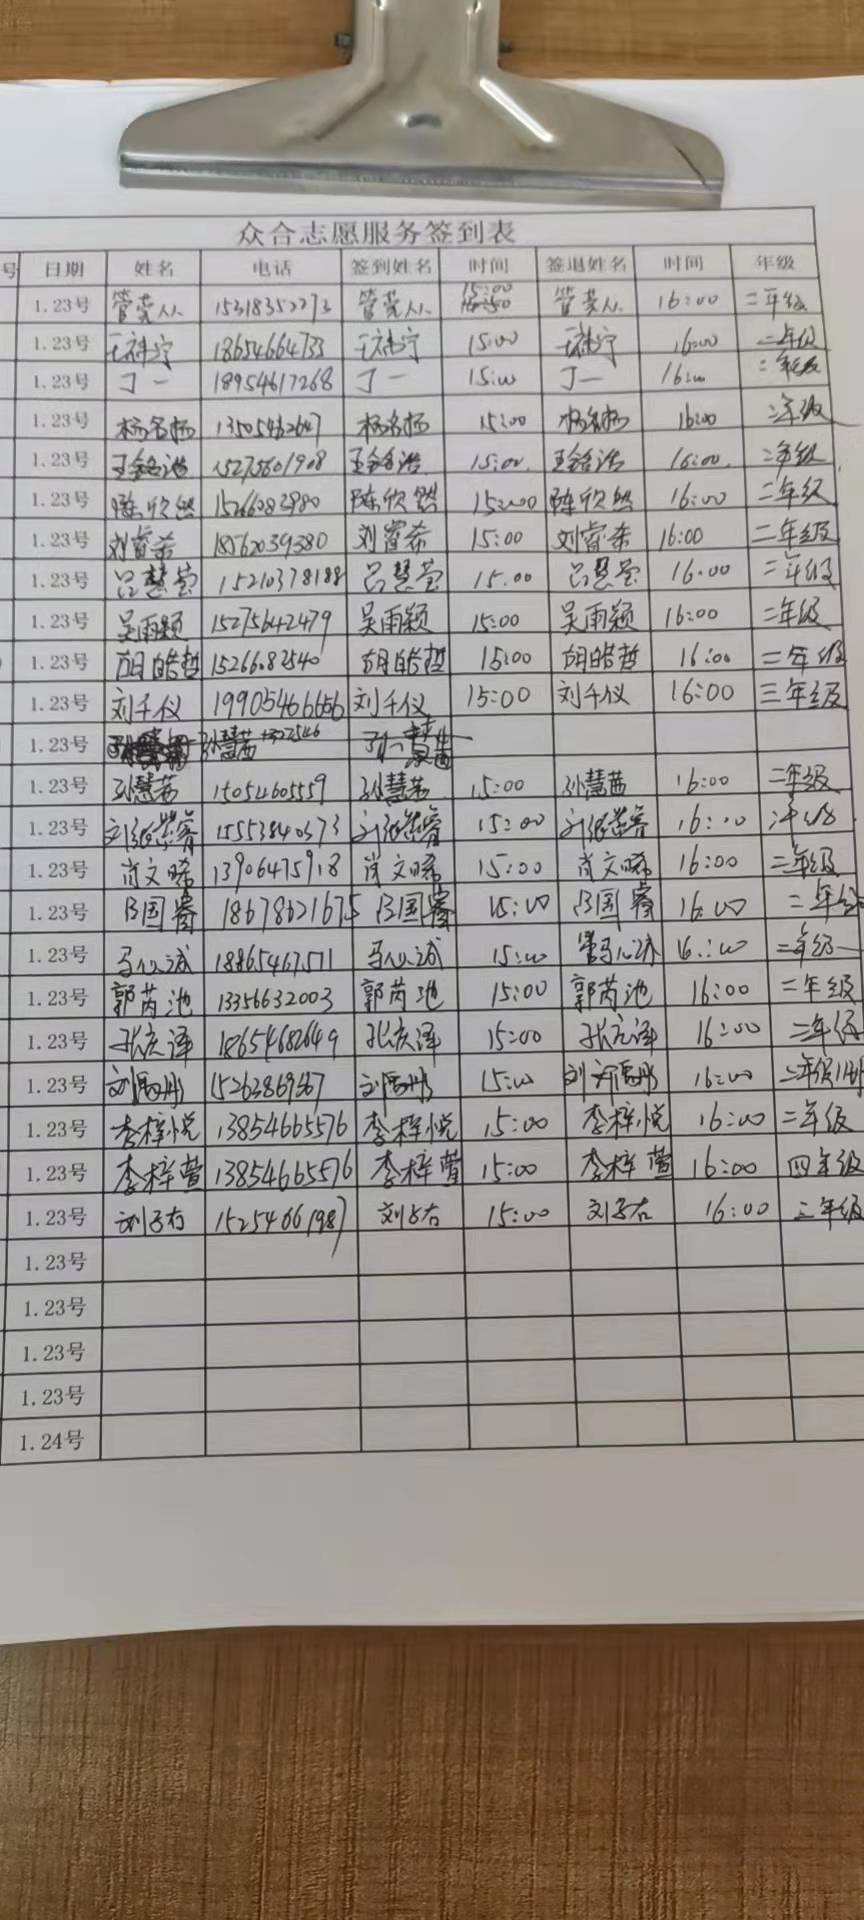 众合志愿服务签到表
号 日期 姓名 电话 签到姓名 时间 签退姓名 时间 年级
1.23号 15318352273 15:00 16:00 二年级
1.23号 王祎宁 18654664733 王祎宁 15:00 王祎宁 16:00 二年级
1.23号 丁一 18954617268 丁一 15:00 丁一 16:00 二年级
1.23号 杨名扬 13505462647 杨名扬 15:00 杨名扬 16:00 二年级
1.23号 15:00 16:00 二年级
1.23号 陈欣然 陈欣然 15:00 陈欣然 16:00 二年级
1.23号 刘睿希 18562039380 刘睿希 15:00 刘睿希 16:00 二年级
1.23号 吕慧莹 15210378188 吕慧莹 15:00 吕慧莹 16:00 二年级
1.23号 吴雨颖 15275642479 吴雨颖 15:00 吴雨颖 16:00 二年级
1.23号 胡皓哲 15266082540 胡皓哲 15:00 胡皓哲 16:00 二年级
1.23号 刘千仪 19905466656 刘千仪 15:00 刘千仪 16:00 三年级
1.23号 孙慧茜
1.23号 孙慧茜 15054605559 孙慧茜 15:00 孙慧茜 16:00 二年级
1.23号 15553840373 15:00 16:00
1.23号 肖文晞 13906475918 肖文晞 15:00 肖文晞 16:00 二年级
1.23号 18678621675 15:00 16:00 二年级
1.23号 马心诚 18865467511 马心诚 15:00 16:00 二年级
1.23号 郭芮池 13356632003 郭芮池 15:00 郭芮池 16:00 二年级
1.23号 张庆泽 18654682649 张庆泽 15:00 张庆泽 16:00 二年级
1.23号 15:00 16:00
1.23号 李梓悦 13854665576 李梓悦 15:00 李梓悦 16:00 二年级
1.23号 李梓萱 13854665576 李梓萱 15:00 李梓萱 16:00 四年级
1.23号 刘子右 15254661987 刘子右 15:00 刘子右 16:00 三年级
1.23号
1.23号
1.23号
1.23号
1.24号